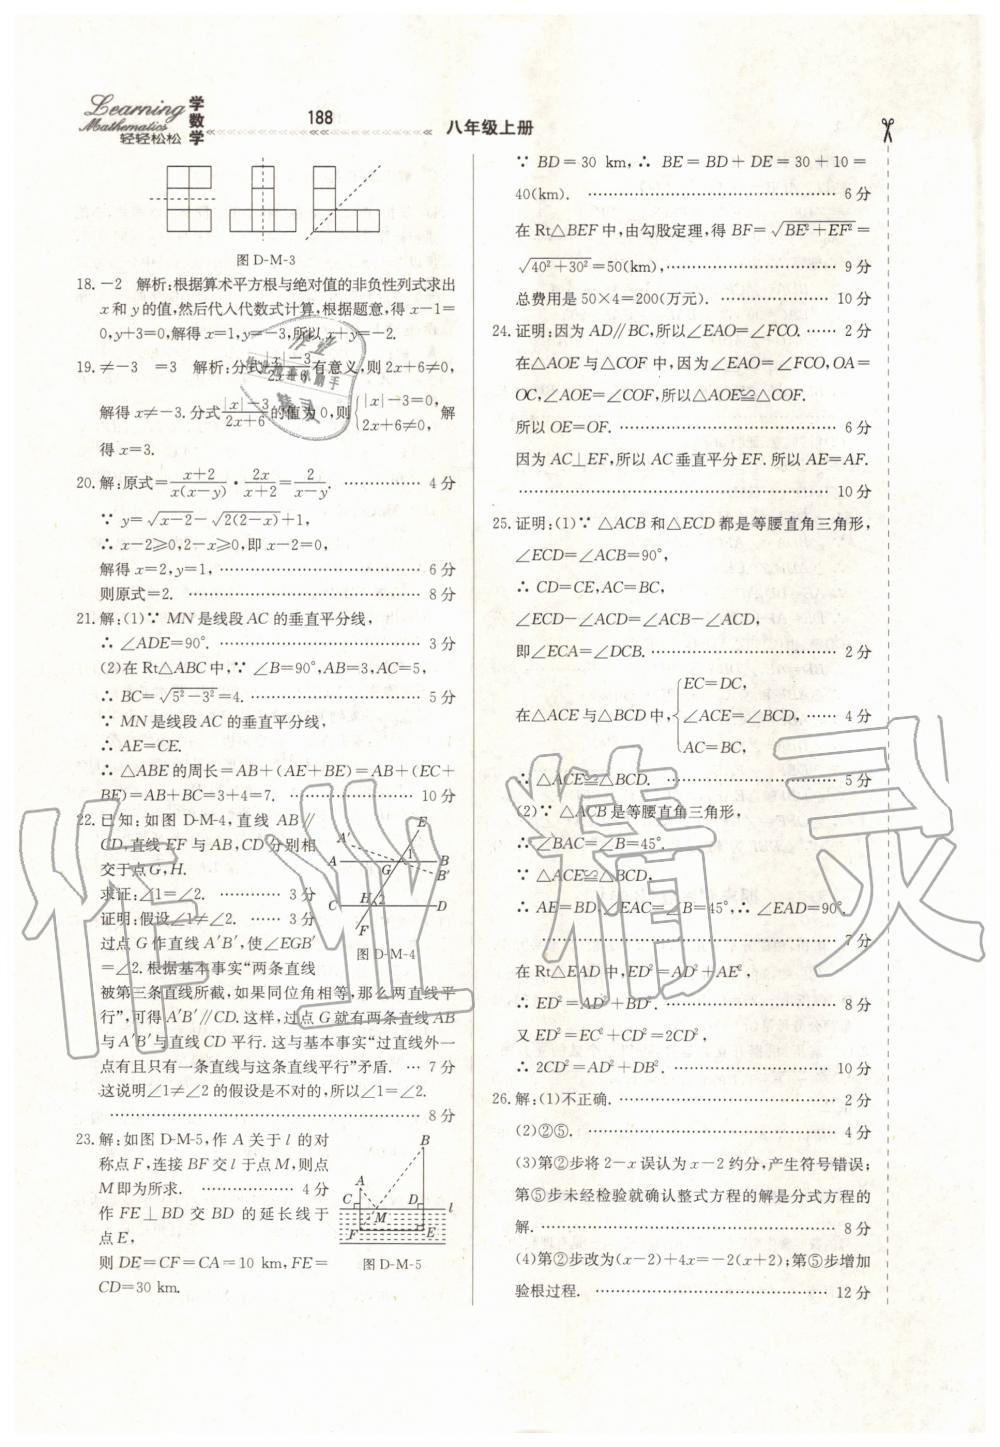 Learning
Mathematics
轻轻松松
学数学
188
八年级上册
图 D-M-3
18. -2 解析:根据算术平方根与绝对值的非负性列式求出
x 和 y 的值,然后代入代数式计算,根据题意,得 x-1=
0,y+3=0,解得 x=1,y=-3,所以 x+y=-2.
19. ≠-3 =3 解析:分式\frac{|x|-3}{2x+6}有意义,则 2x+6≠0,
解得 x≠-3.分式\frac{|x|-3}{2x+6}的值为 0,则{|x|-3=0, 2x+6≠0, 解
得 x=3.
20. 解:原式=\frac{x+2}{x(x-y)}·\frac{2x}{x+2}=\frac{2}{x-y}. …………… 4 分
∵ y=√(x-2)-√(2(2-x))+1,
∴ x-2≥0,2-x≥0,即 x-2=0,
解得 x=2,y=1, …………………………………… 6 分
则原式=2. …………………………………………… 8 分
21. 解:(1)∵ MN 是线段 AC 的垂直平分线,
∴ ∠ADE=90°. …………………………………… 3 分
(2)在 Rt△ABC 中,∵ ∠B=90°,AB=3,AC=5,
∴ BC=√(5²-3²)=4. ……………………………… 5 分
∵ MN 是线段 AC 的垂直平分线,
∴ AE=CE.
∴ △ABE 的周长=AB+(AE+BE)=AB+(EC+
BE)=AB+BC=3+4=7. …………………… 10 分
22. 已知:如图 D-M-4,直线 AB∥
CD,直线 EF 与 AB,CD 分别相
交于点 G,H.
求证:∠1=∠2. ………… 3 分
证明:假设∠1≠∠2. …… 3 分
过点 G 作直线 A′B′,使∠EGB′
=∠2.根据基本事实“两条直线
A′ E A G 1 B B′
C H 2 D
F
图 D-M-4
被第三条直线所截,如果同位角相等,那么两直线平
行”,可得 A′B′∥CD.这样,过点 G 就有两条直线 AB
与 A′B′与直线 CD 平行.这与基本事实“过直线外一
点有且只有一条直线与这条直线平行”矛盾. … 7 分
这说明∠1≠∠2 的假设是不对的,所以∠1=∠2.
……………………………………………………… 8 分
23. 解:如图 D-M-5,作 A 关于 l 的对
称点 F,连接 BF 交 l 于点 M,则点
M 即为所求. ……………… 4 分
作 FE⊥BD 交 BD 的延长线于
点 E,
则 DE=CF=CA=10 km,FE=
CD=30 km.
B
A
C M D l
F E
图 D-M-5
∵ BD=30 km,∴ BE=BD+DE=30+10=
40(km). …………………………………………… 6 分
在 Rt△BEF 中,由勾股定理,得 BF=√(BE²+EF²)=
√(40²+30²)=50(km), ………………………… 9 分
总费用是 50×4=200(万元). ………………… 10 分
24. 证明:因为 AD∥BC,所以∠EAO=∠FCO. …… 2 分
在△AOE 与△COF 中,因为∠EAO=∠FCO,OA=
OC,∠AOE=∠COF,所以△AOE≌△COF.
所以 OE=OF. ……………………………………… 6 分
因为 AC⊥EF,所以 AC 垂直平分 EF.所以 AE=AF.
……………………………………………………… 10 分
25. 证明:(1)∵ △ACB 和△ECD 都是等腰直角三角形,
∠ECD=∠ACB=90°,
∴ CD=CE,AC=BC,
∠ECD-∠ACD=∠ACB-∠ACD,
即∠ECA=∠DCB. ……………………………… 2 分
在△ACE 与△BCD 中,{EC=DC, ∠ACE=∠BCD, AC=BC, …… 4 分
∴ △ACE≌△BCD. ……………………………… 5 分
(2)∵ △ACB 是等腰直角三角形,
∴ ∠BAC=∠B=45°.
∵ △ACE≌△BCD,
∴ AE=BD,∠EAC=∠B=45°,∴ ∠EAD=90°.
……………………………………………………… 7 分
在 Rt△EAD 中,ED²=AD²+AE²,
∴ ED²=AD²+BD². ……………………………… 8 分
又 ED²=EC²+CD²=2CD²,
∴ 2CD²=AD²+DB². …………………………… 10 分
26. 解:(1)不正确. …………………………………… 2 分
(2)②⑤. …………………………………………… 4 分
(3)第②步将 2-x 误认为 x-2 约分,产生符号错误;
第⑤步未经检验就确认整式方程的解是分式方程的
解. …………………………………………………… 8 分
(4)第②步改为(x-2)+4x=-2(x+2);第⑤步增加
验根过程. ………………………………………… 12 分
作业精灵